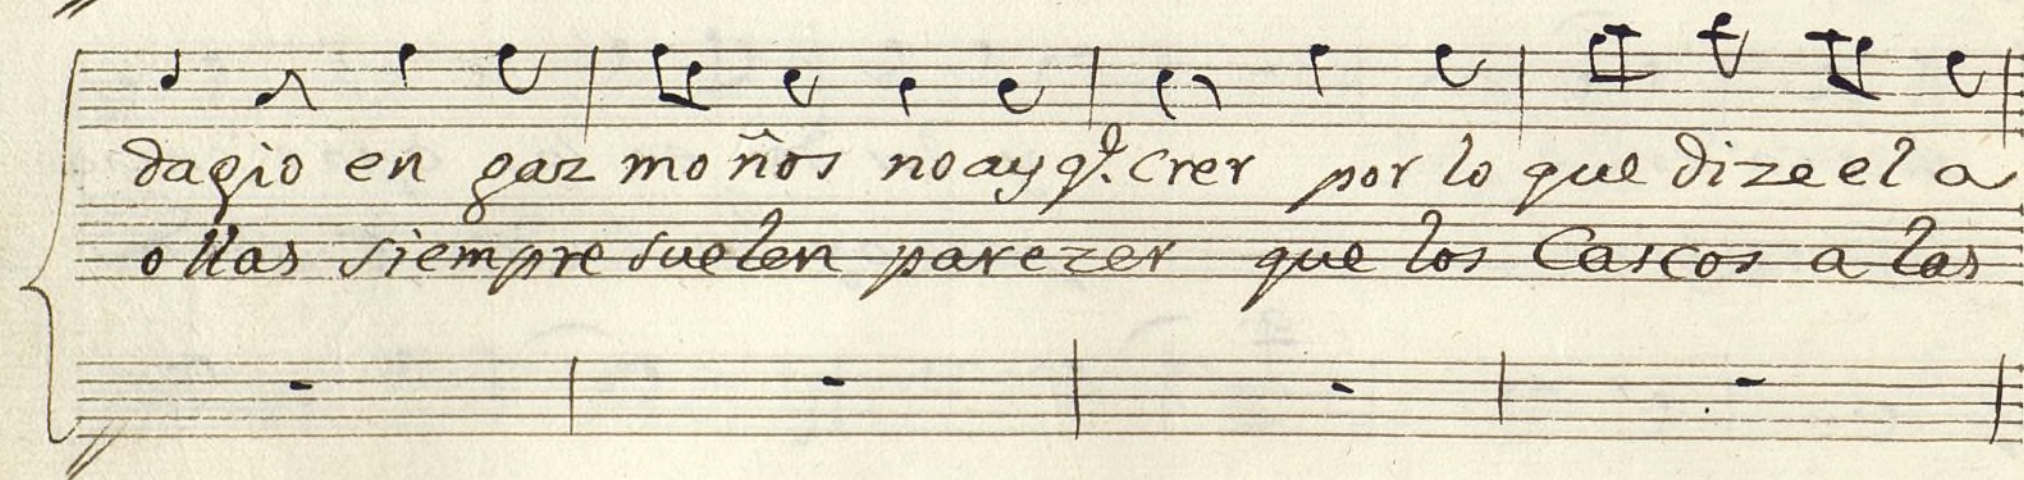 dagio en gaz moños no ay q.e crer por lo que dize el a
ollas siempre suelen parezer que los Cascos a las